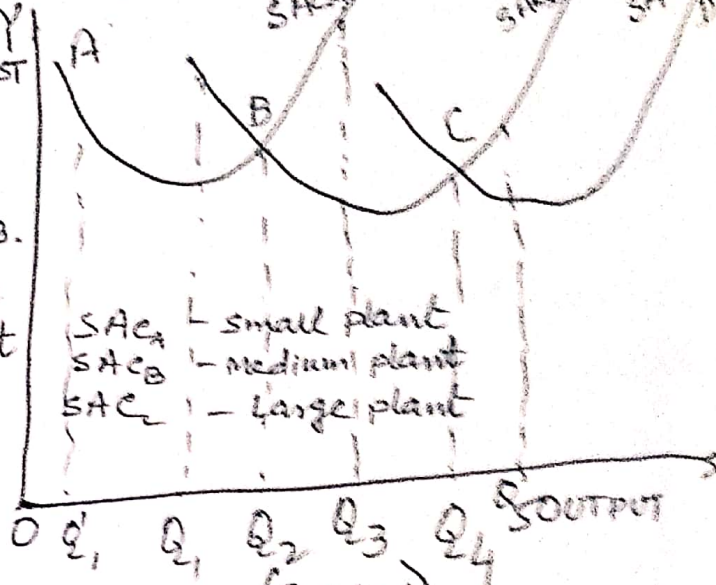 Y
ST
A
B
C
SAC_A - small plant
SAC_B - medium plant
SAC_C - Large plant
O Q'₁ Q₁ Q₂ Q₃ Q₄ Q₅ OUTPUT